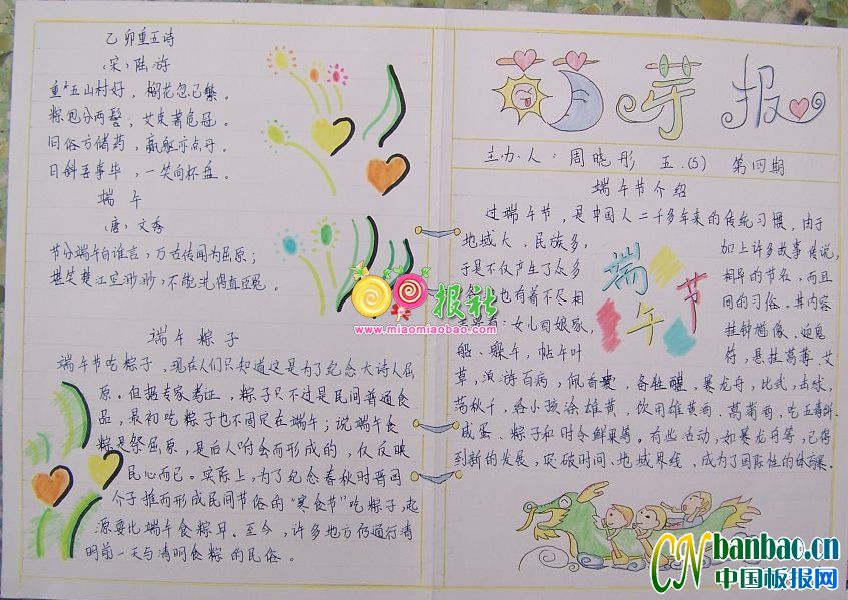 乙卯重五诗
(宋) 陆游
重五山村好，榴花忽已繁。
粽包分两髻，艾束著危冠。
旧俗方储药，羸躯亦点丹。
日斜吾事毕，一笑向杯盘。
端午
(唐) 文秀
节分端午自谁言，万古传闻为屈原；
堪笑楚江空渺渺，不能洗得直臣冤。
端午粽子
端午节吃粽子，现在人们只知道这是为了纪念大诗人屈
原。但据专家考证，粽子只不过是民间普通食
品，最初吃粽子也不固定在端午；说端午食
粽是祭屈原，是后人附会而形成的，仅反映
民心而已。实际上，为了纪念春秋时晋国
介子推而形成民间节俗的“寒食节”吃粽子，起
源要比端午食粽早。至今，许多地方仍通行清
明前一天与清明食粽的民俗。
芽报
主办人：周晓彤 五.(5) 第四期
端午节介绍
过端午节，是中国人二千多年来的传统习惯，由于
地域大，民族多，加上许多故事传说，
于是不仅产生了众多相异的节名，而且
也有着不尽相同的习俗。其内容
女儿回娘家，挂钟馗像，迎鬼
船、躲午，帖午叶符，悬挂菖蒲、艾
草，游百病，佩香囊，备牲醴，赛龙舟，比武，击球，
荡秋千，给小孩涂雄黄，饮用雄黄酒、菖蒲酒，吃五毒饼
咸蛋、粽子和时令鲜果等。有些活动，如赛龙舟等，已得
到新的发展，突破时间、地域界线，成为了国际性的体育赛
端午节
报社
www.miaomiaobao.com
CNbanbao.cn
中国板报网